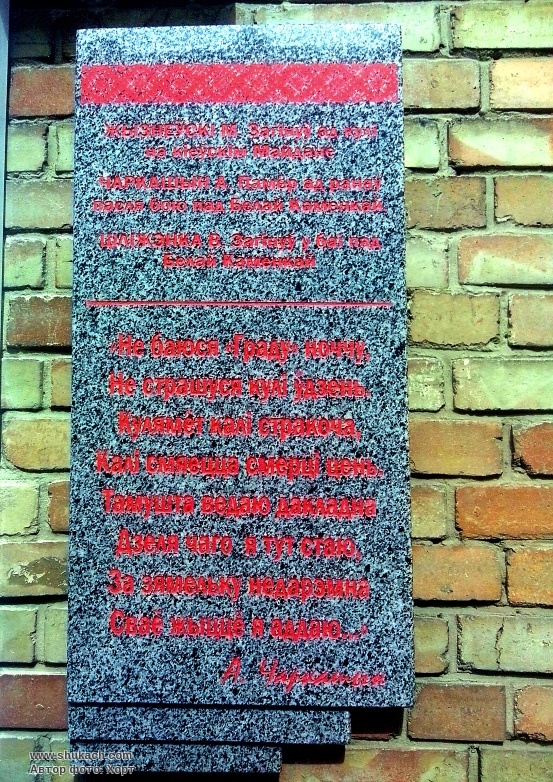 ЖЫЗНЕЎСКІ М. Загінуў ад кулі
на кіеўскім Майдане
ЧАРКАШЫН А. Памёр ад ранаў
пасля бою пад Белай Каменкай
ШЛІЖЭНКА В. Загінуў у баі пад
Белай Каменкай
«Не баюся «Граду» ноччу,
Не страшуся кулі ўдзень.
Кулямёт калі стракоча,
Калі смяецца смерці цень.
Тамушта ведаю дакладна
Дзеля чаго я тут стаю,
За зямельку недарэмна
Сваё жыццё я аддаю...»
А. Чаркашын
www.shukach.com
Автор фото: Хорт